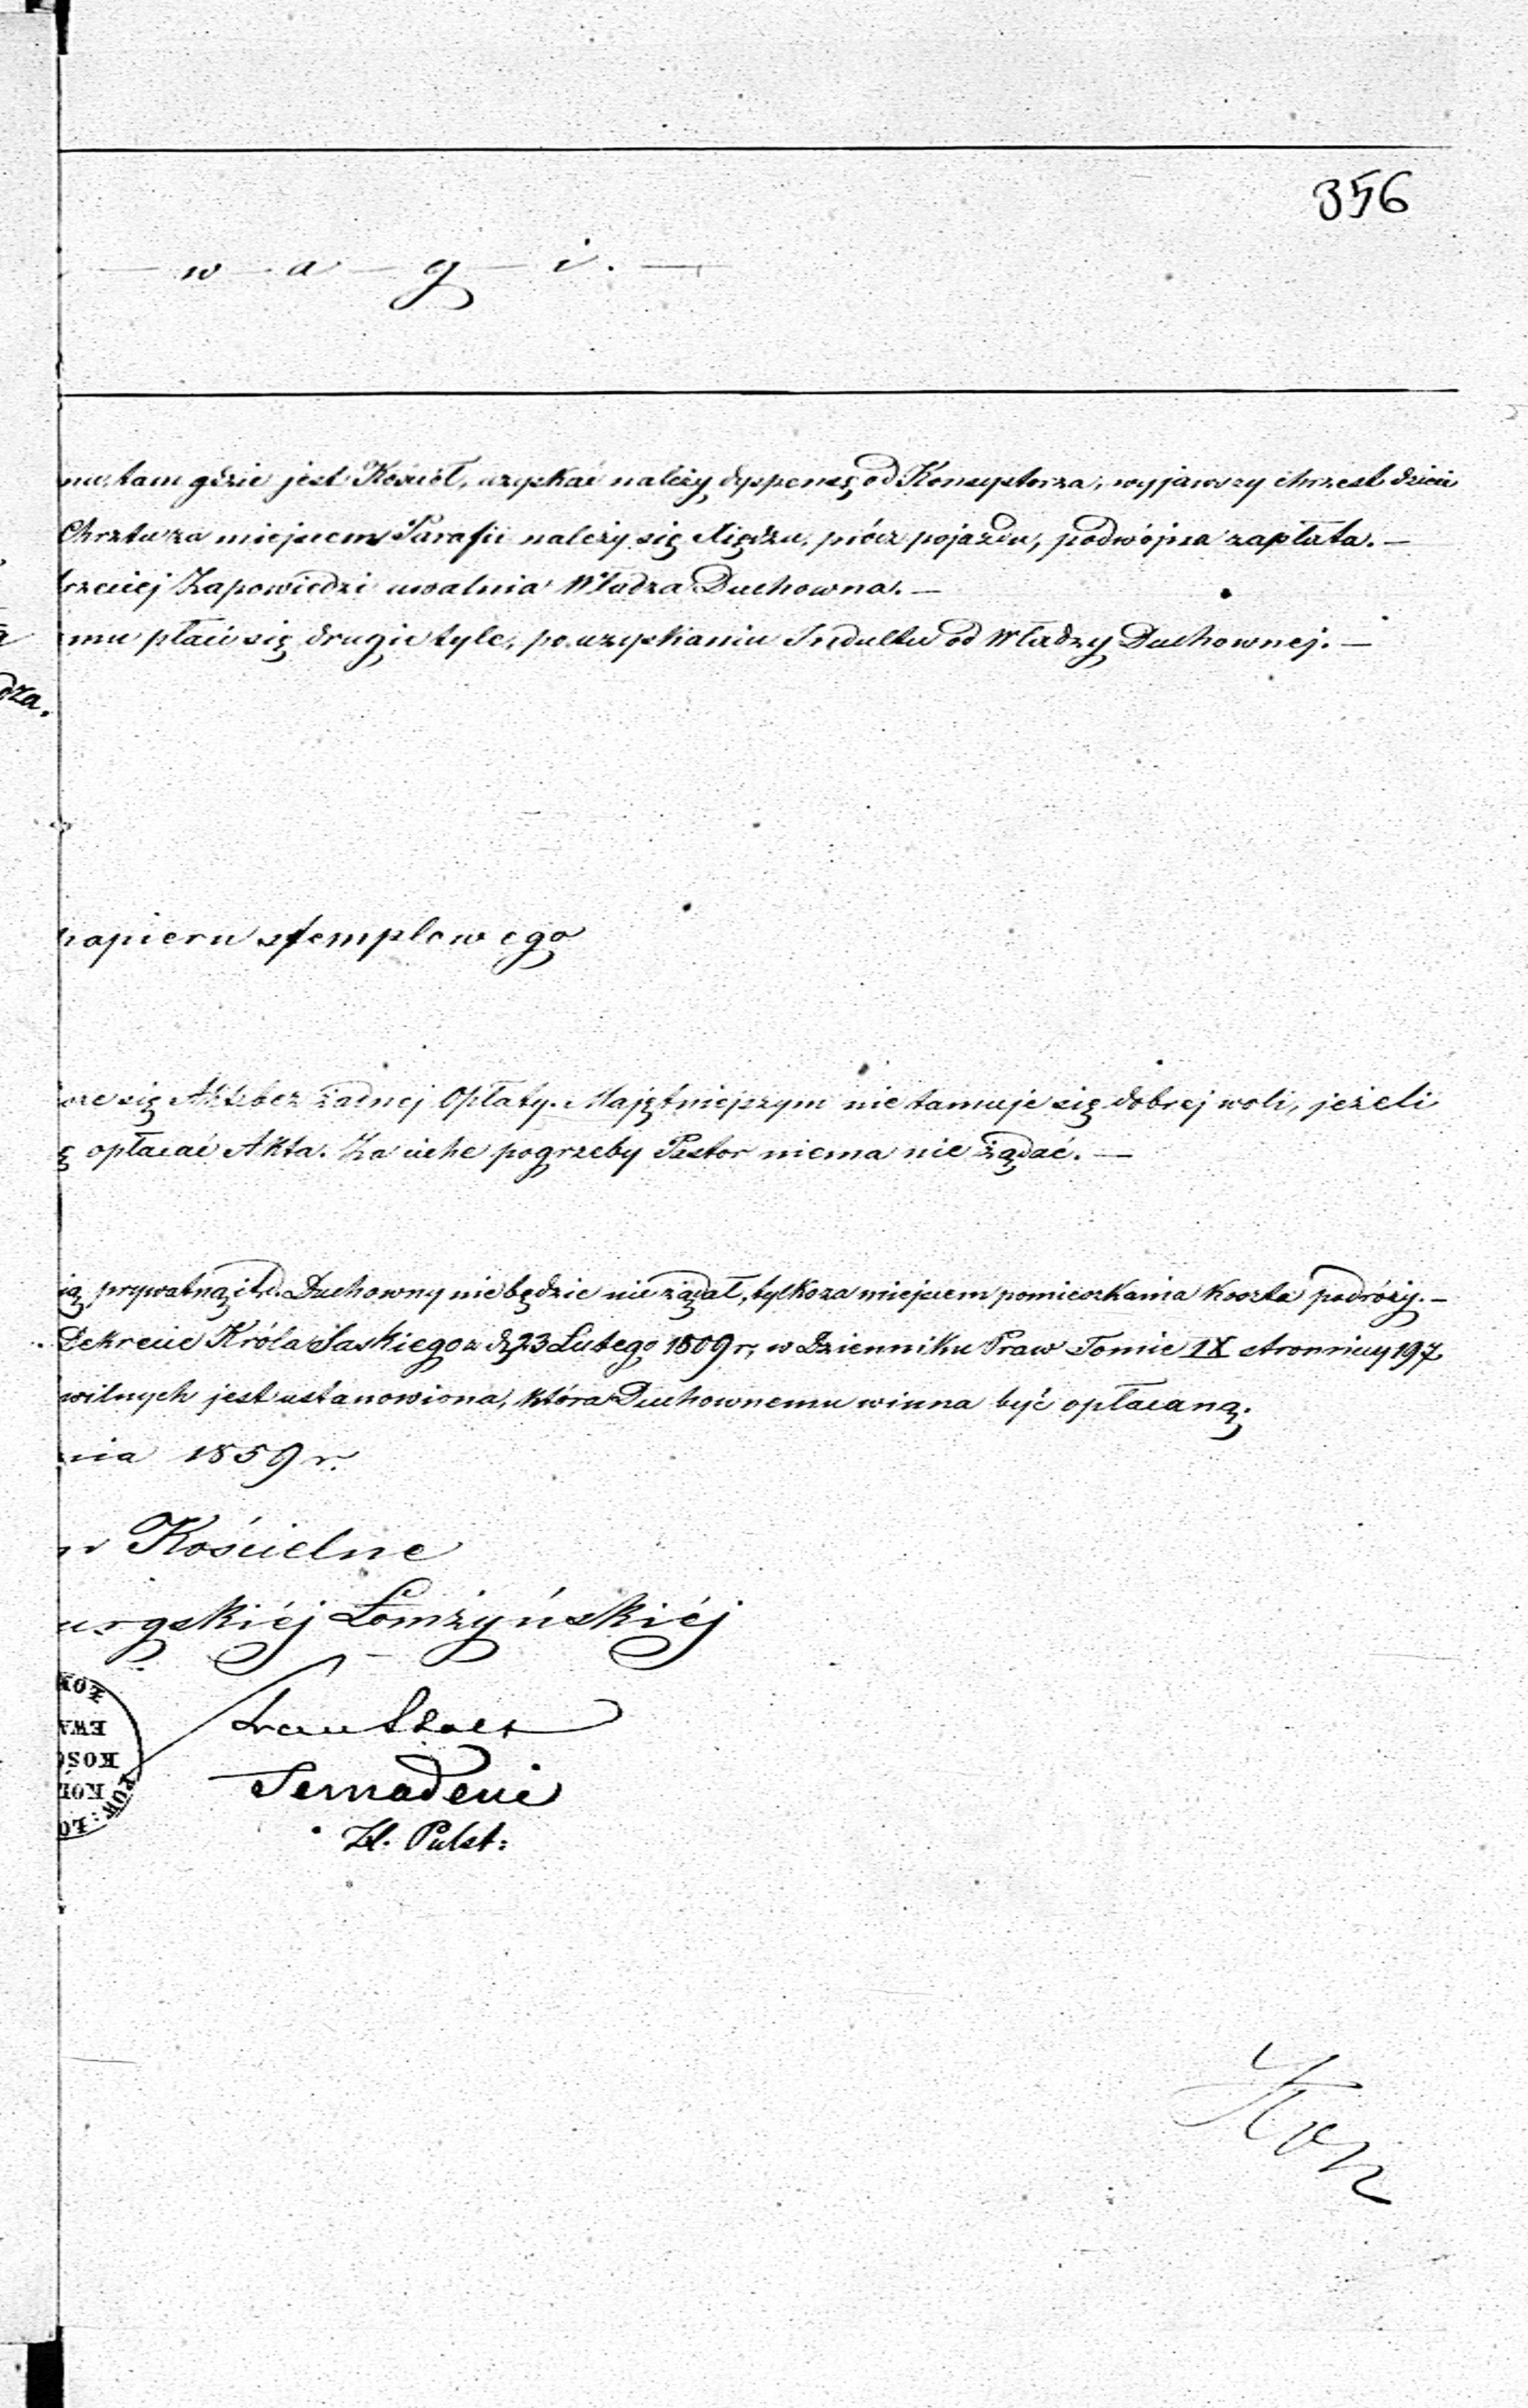 356
— w — a — g — i. —
mu, tam gdzie jest Kościół, uzyskać należy dyspensę od Konsystorza, wyjąwszy chrzest dzieci
Chrztu za miejscem Parafii należy się Xiędzu, prócz pojazdu, podwójna zapłata. —
trzeciej Zapowiedzi uwalnia Władza Duchowna. —
mu płaci się drugie tyle, po uzyskaniu Indultu od Władzy Duchownej. —
dza.
papieru stemplowego
orze się Akt bez żadnej Opłaty. Majętniejszym nie tamuje się dobrej woli, jeżeli
ę opłacać Akta. Za ciche pogrzeby Pastor niema nic żądać. —
ią prywatną itd. Duchowny nie będzie nic żądał, tylko za miejscem pomieszkania koszta podróży. —
Dekrecie Króla Saskiego z d. 23 Lutego 1809 r, w Dzienniku Praw Tomie IX stronnicy 197
wilnych jest ustanowiona, która Duchownemu winna być opłacaną.
nia 1859 r.
w Kościelne
urgskiéj Łomżyńskiéj
EWA
KOŚ
POW: ŁO